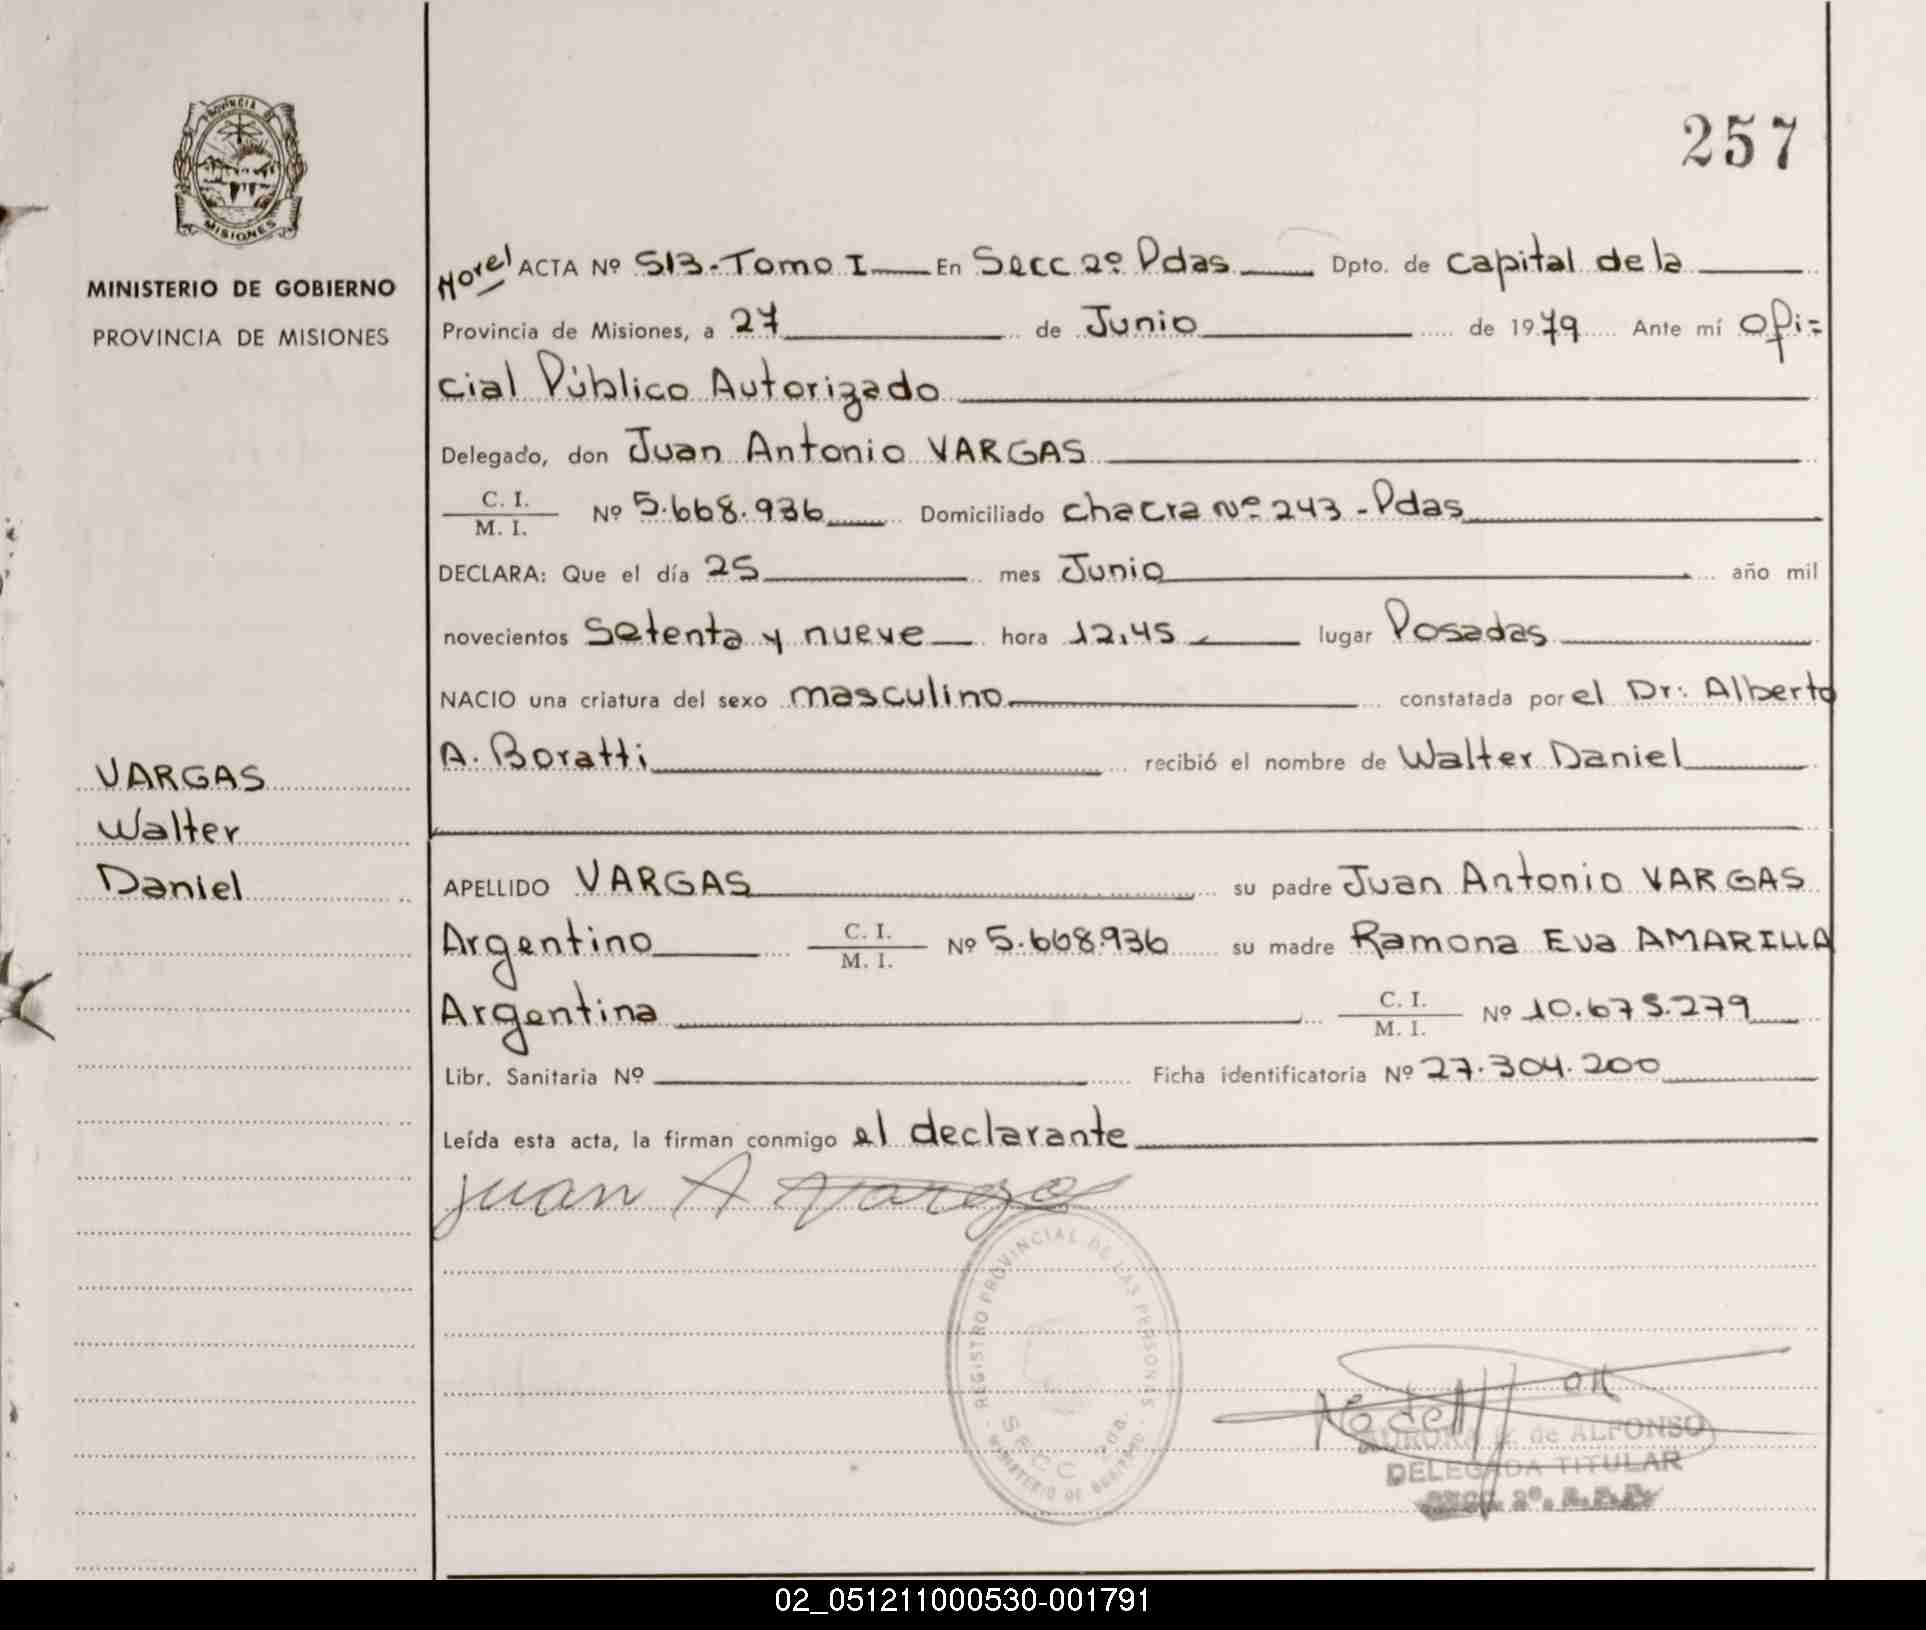 257
PROVINCIA DE
MISIONES
MINISTERIO DE GOBIERNO
PROVINCIA DE MISIONES
ACTA Nº 513-Tomo I En Secc 2º Pdas Dpto. de capital de la
Provincia de Misiones, a 27 de Junio de 1979 Ante mí Ofi=
cial Público Autorizado
Delegado, don Juan Antonio VARGAS
C. I.
M. I.
Nº 5.668.936 Domiciliado chacra Nº 243 - Pdas
DECLARA: Que el día 25 mes Junio año mil
novecientos Setenta y nueve hora 12,45 lugar Posadas
NACIO una criatura del sexo masculino constatada por el Dr: Alberto
A. Boratti recibió el nombre de Walter Daniel
VARGAS
Walter
Daniel
APELLIDO VARGAS su padre Juan Antonio VARGAS
Argentino C. I. / M. I. Nº 5.668.936 su madre Ramona Eva AMARILLA
Argentina C. I. / M. I. Nº 10.675.279
Libr. Sanitaria Nº Ficha identificatoria Nº 27.304.200
Leída esta acta, la firman conmigo el declarante
Juan A Vargas
REGISTRO PROVINCIAL DE LAS PERSONAS
SECC 2da.
MINISTERIO DE GOBIERNO
AURORA de ALFONSO
DELEGADA TITULAR
SECC. 2º. R.P.P.
02_051211000530-001791